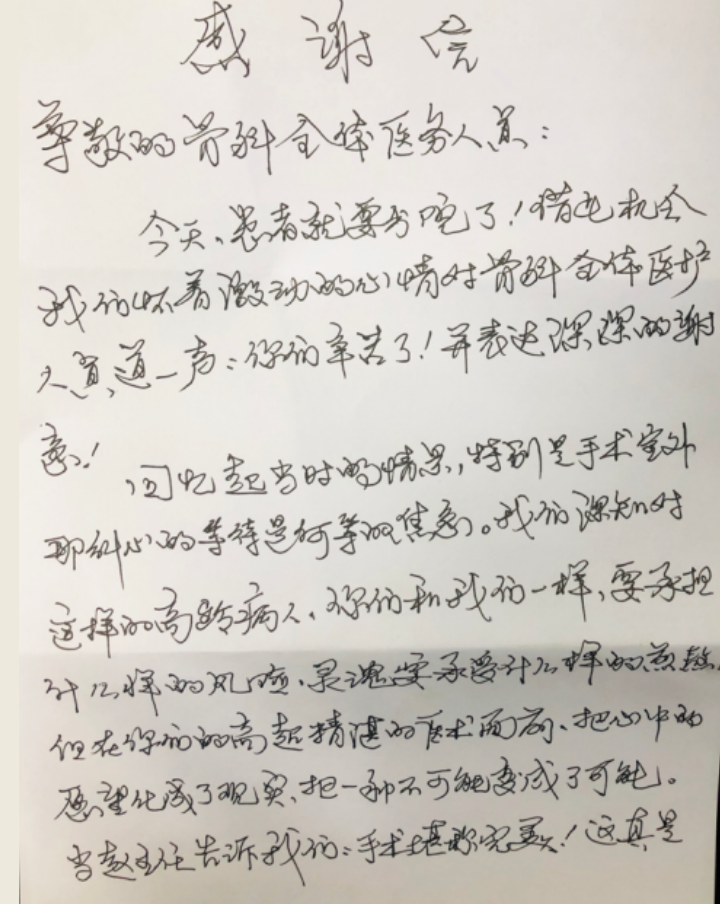 感谢信
尊敬的骨科全体医务人员：
今天，患者就要出院了！借此机会
我们怀着激动的心情对骨科全体医护
人员，道一声：你们辛苦了！并表达深深的谢
意！
回忆起当时的情景，特别是手术室外
那纠心的等待是何等的焦急。我们深知对
这样的高龄病人，你们和我们一样，要承担
什么样的风险、灵魂要承受什么样的煎熬，
但在你们的高超精湛的医术面前、把心中的
愿望化成了现实、把一种不可能变成了可能。
当赵主任告诉我们：手术堪称完美！这真是